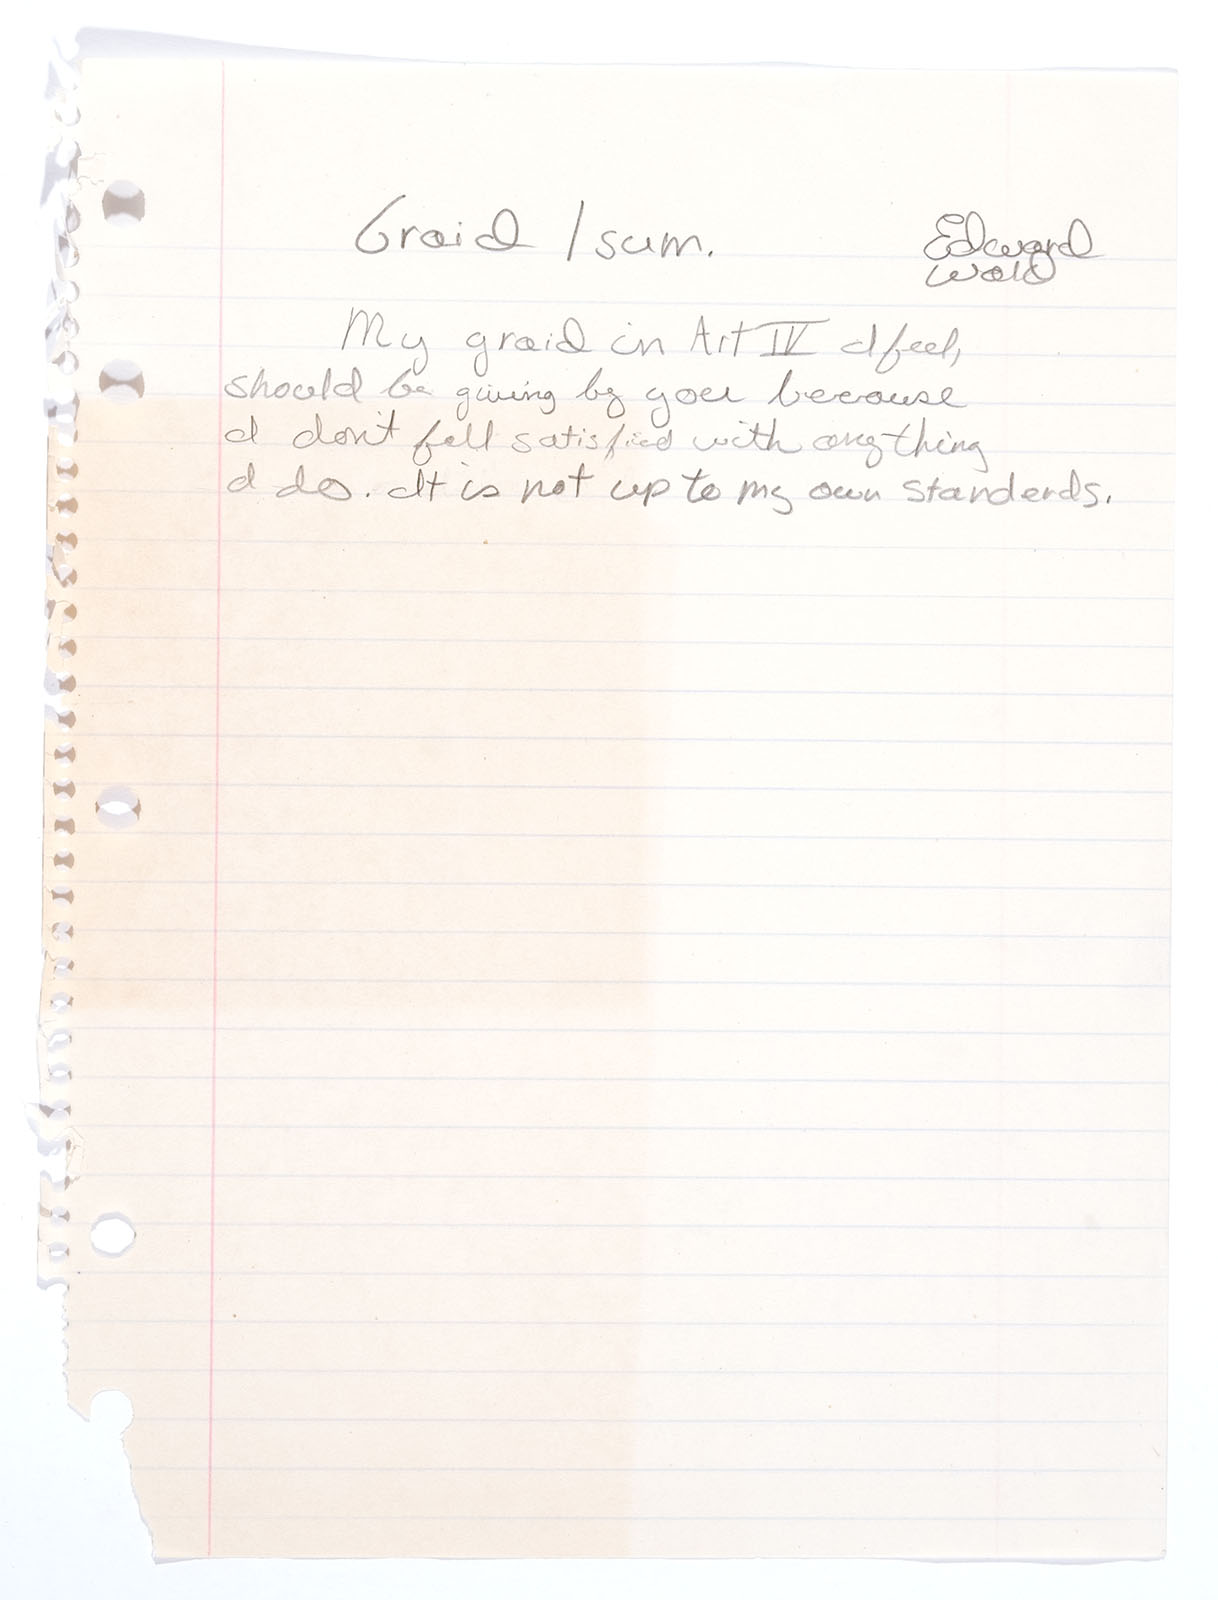 Graid / sum.
Edward
Wold
My graid in Art IV I feel,
should be giving by you because
I don't fell satisfied with anything
I do. It is not up to my own standerds.